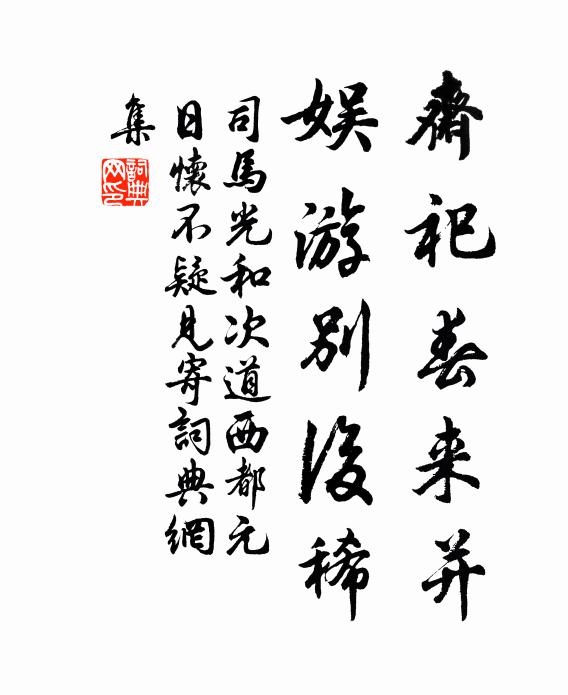 齋祀春来并
娛游別後稀
司馬光和次道西都元
日懷不疑見寄詞典網
集
詞典
网印